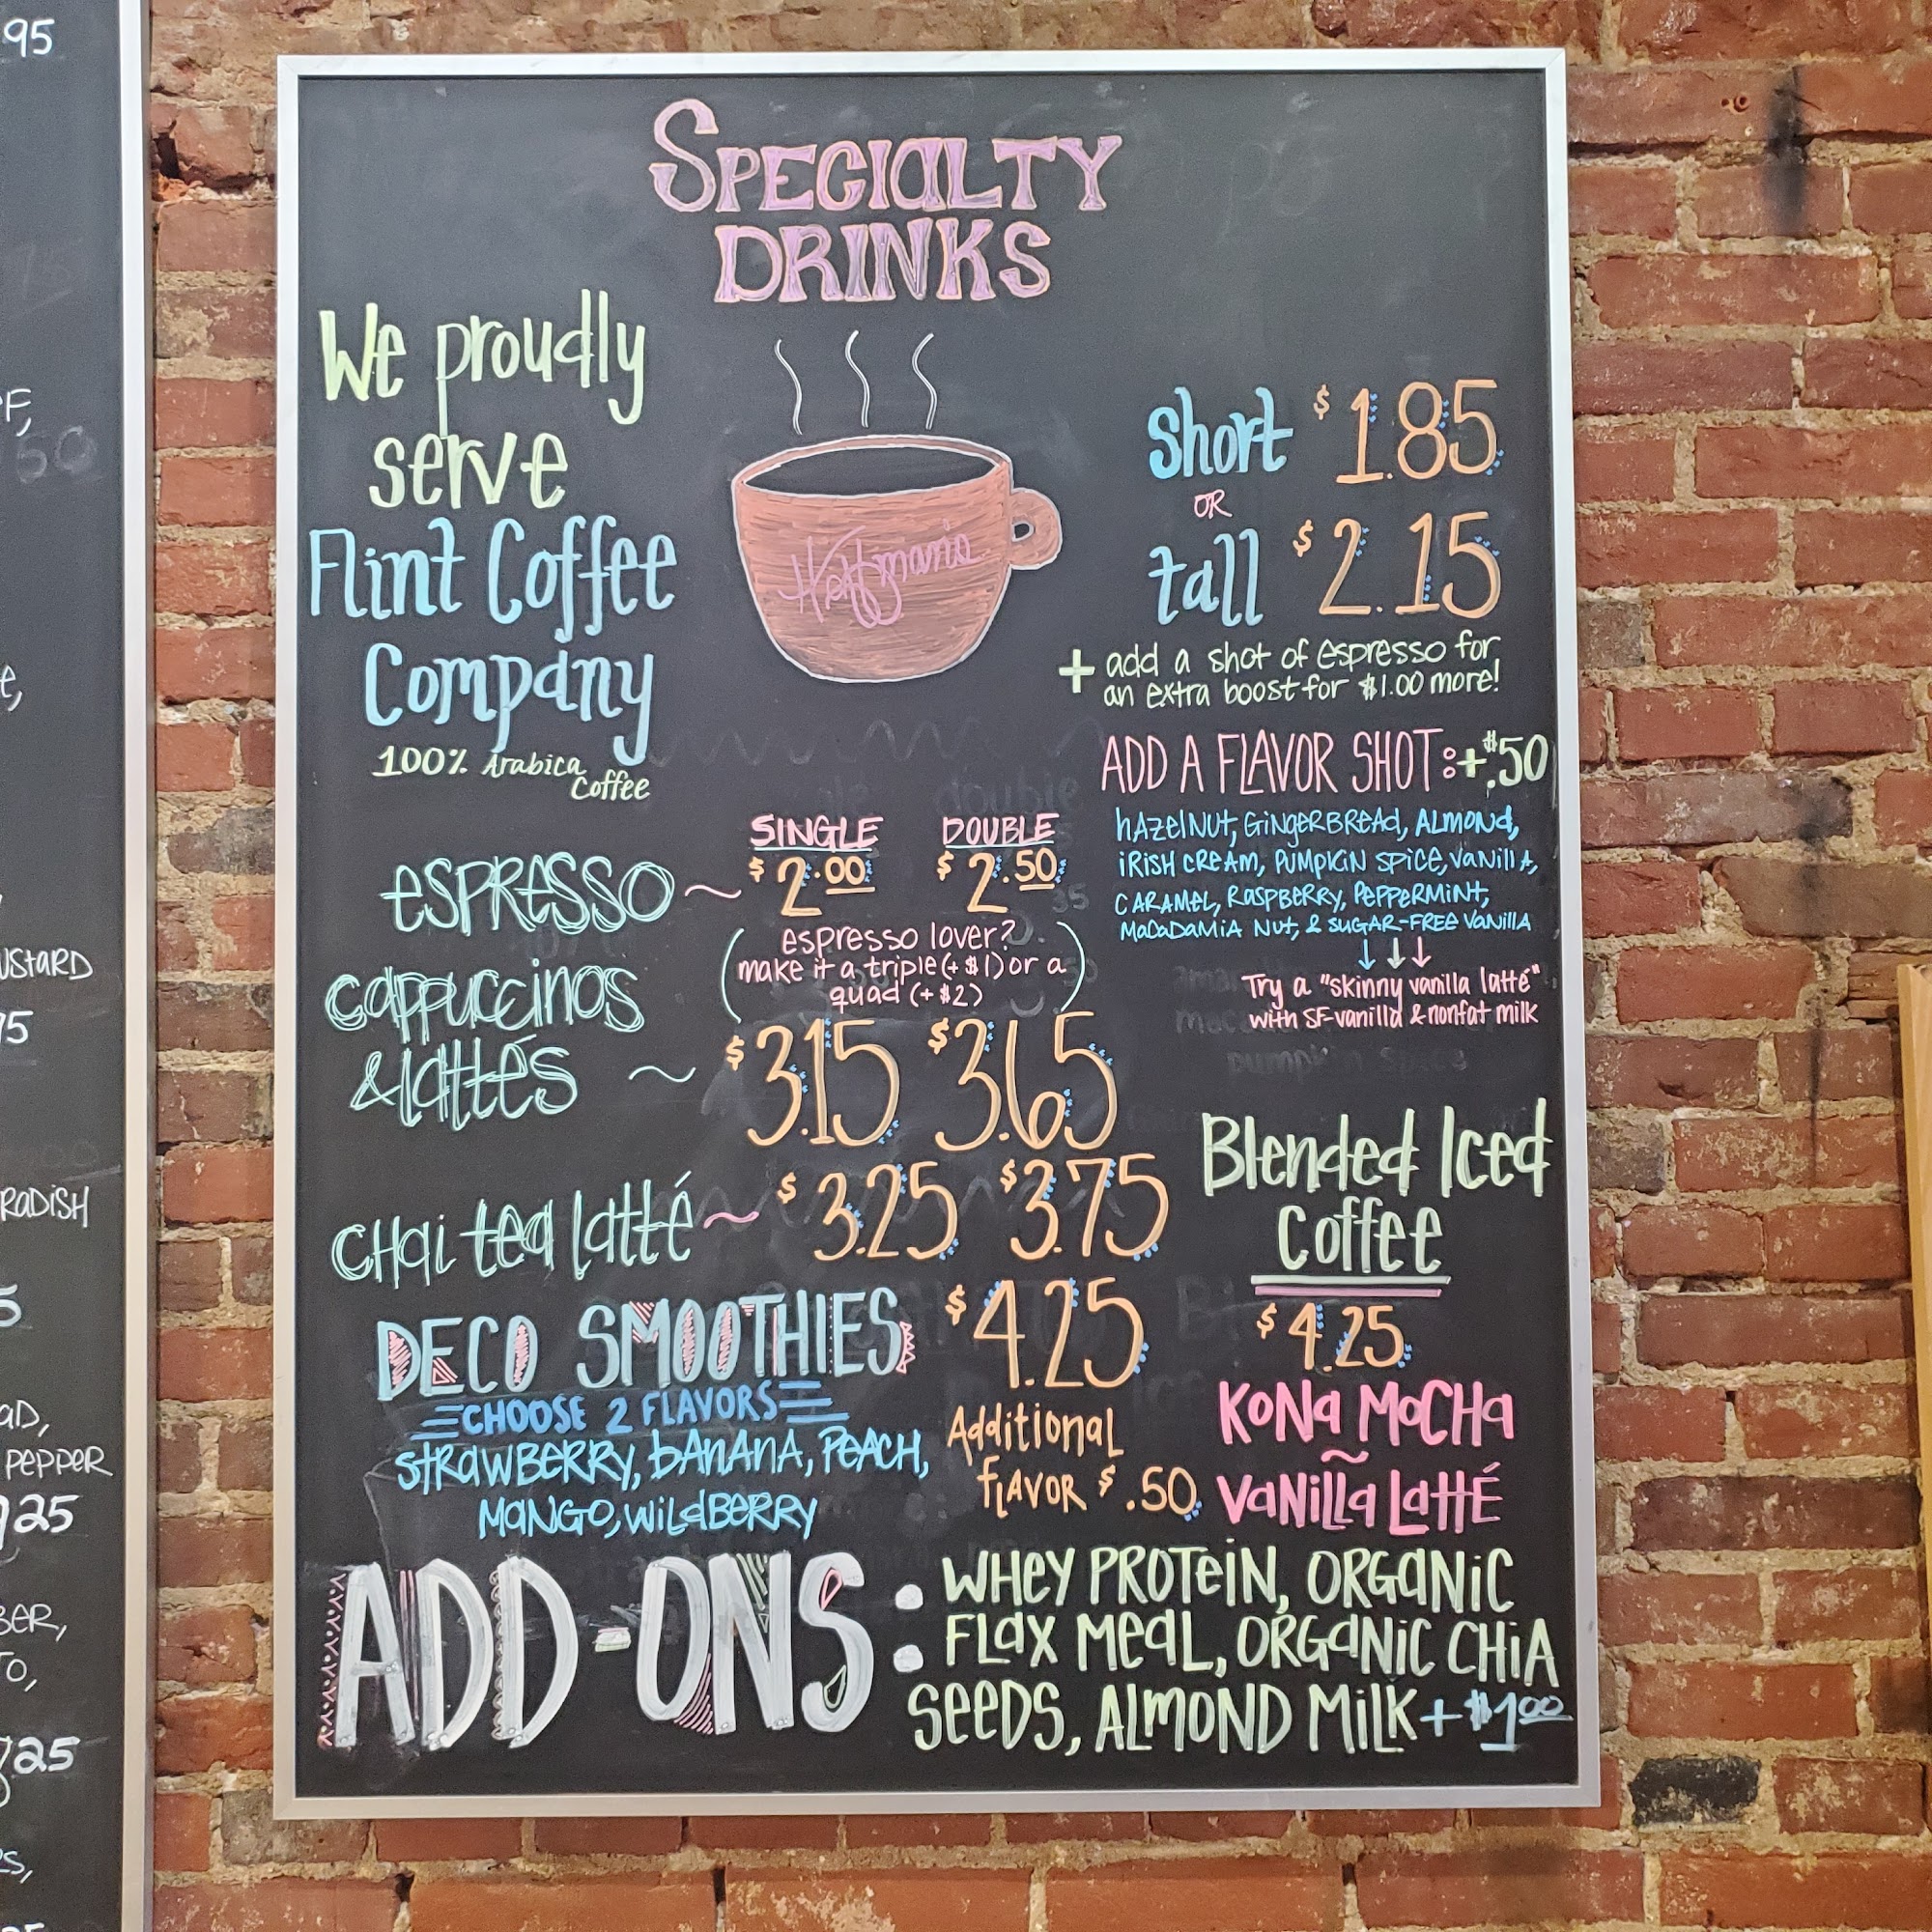 SPECIALTY
DRINKS
We proudly
serve
Flint Coffee
Company
100% Arabica
Coffee
Hoffman's
short $1.85
OR
tall $2.15
+ add a shot of espresso for
an extra boost for $1.00 more!
ADD A FLAVOR SHOT: +$.50
HAZELNUT, GINGERBREAD, ALMOND,
IRISH CREAM, PUMPKIN SPICE, VANILLA,
CARAMEL, RASPBERRY, PEPPERMINT,
MACADAMIA NUT, & SUGAR-FREE VANILLA
Try a "skinny vanilla latté"
with SF vanilla & nonfat milk
SINGLE DOUBLE
ESPRESSO ~ $2.00 $2.50
(espresso lover?
make it a triple (+$1) or a
quad (+$2))
cappuccinos
& lattés ~ $3.15 $3.65
CHai tea latté ~ $3.25 $3.75
DECO SMOOTHIES $4.25
CHOOSE 2 FLAVORS
STRAWBERRY, BANANA, PEACH,
MANGO, WILDBERRY
Additional
flavor $.50
Blended Iced
Coffee
$4.25
KONA MOCHA
~
VANILLA LATTÉ
ADD-ONS:
WHEY PROTEIN, ORGANIC
FLAX MEAL, ORGANIC CHIA
SEEDS, ALMOND MILK + $1.00
95
F,
USTARD
RADISH
AD,
PEPPER
25
BER,
TO,
25